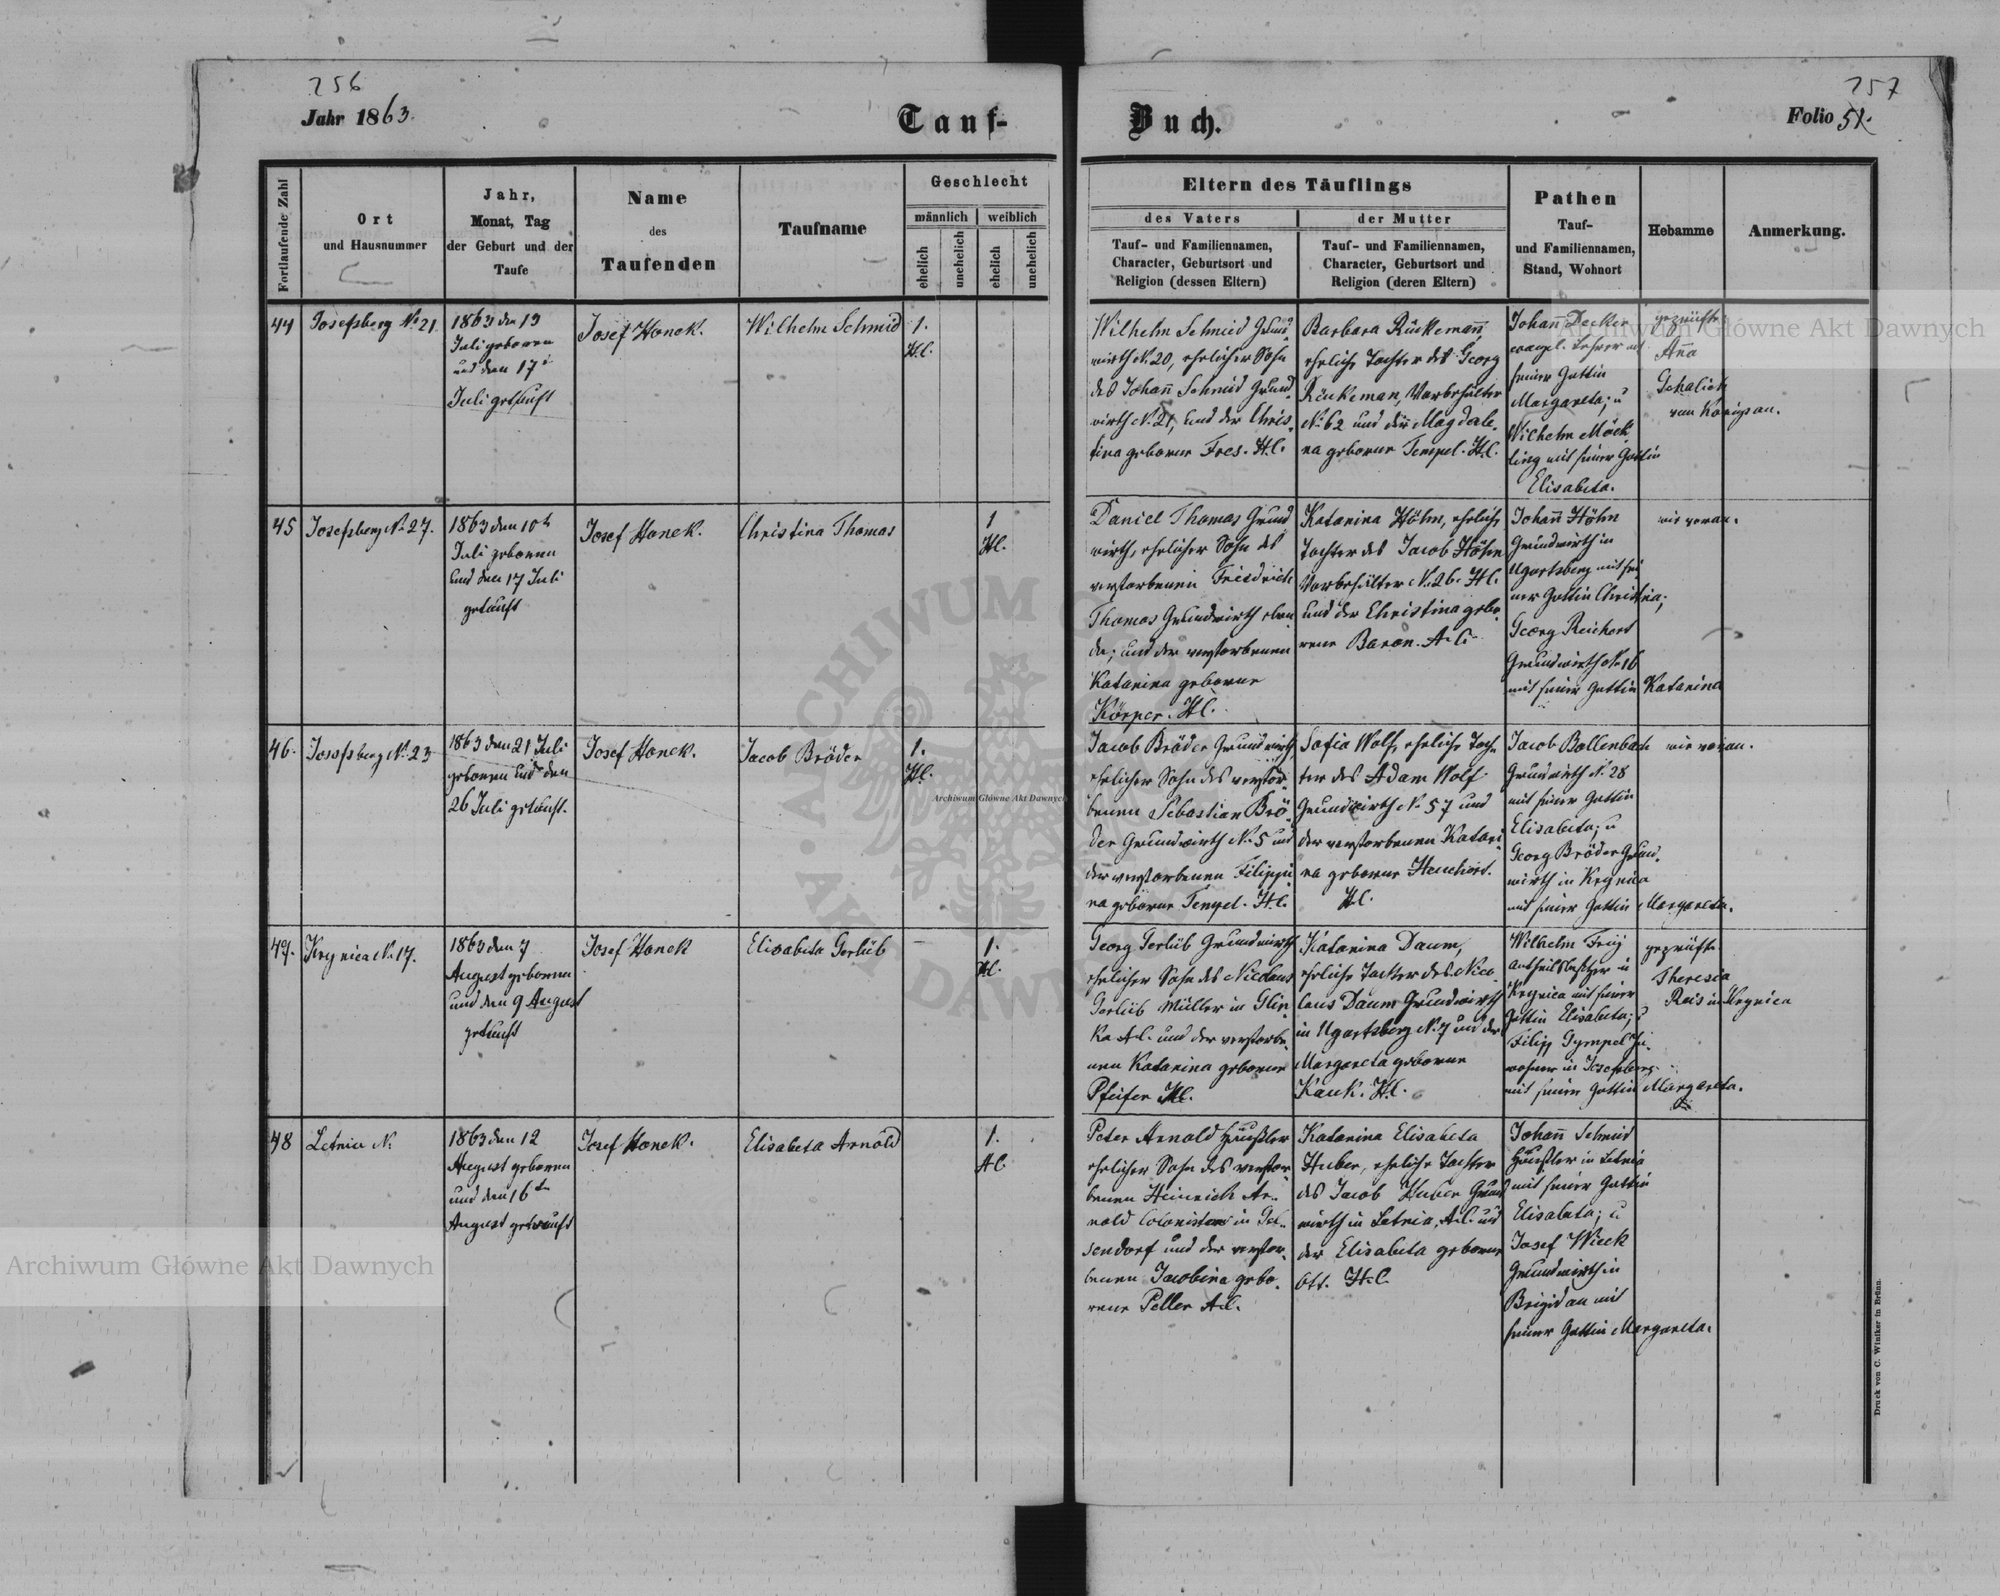 256
Jahr 1863.
Tauf-
Buch.
257
Folio 51.
Fortlaufende Zahl
Ort
und Hausnummer
Jahr,
Monat, Tag
der Geburt und der
Taufe
Name
des
Taufenden
Taufname
Geschlecht
männlich
weiblich
ehelich
unehelich
ehelich
unehelich
Eltern des Täuflings
des Vaters
der Mutter
Tauf- und Familiennamen,
Character, Geburtsort und
Religion (dessen Eltern)
Tauf- und Familiennamen,
Character, Geburtsort und
Religion (deren Eltern)
Pathen
Tauf-
und Familiennamen,
Stand, Wohnort
Hebamme
Anmerkung.
44
Josefsberg No 21
1863 den 13
Juli geboren
und den 17
Juli getauft
Josef Honek.
Wilhelm Schmid
1.
H.C.
Wilhelm Schmid Grund-
wirth N. 20, ehelicher Sohn
des Johann Schmid Grund-
wirth N. 21, und der Chris-
tina geborne Fres. H.C.
Barbara Rückemann,
eheliche Tochter des Georg
Rückeman, Vorbehälter
N. 62 und der Magdale-
na geborne Tempel. H.C.
Johann Decker
evangl. Lehrer mit
seiner Gattin
Margareta; u
Wilhelm Möck-
ling mit seiner Gattin
Elisabeta.
geprüfte
Anna
Schalich
von Königsau.
45
Josefsberg No 27.
1863 den 10ten
Juli geboren
und den 17 Juli
getauft
Josef Honek.
Christina Thomas
1
H.C.
Daniel Thomas Grund
wirth, ehelicher Sohn des
verstorbenen Friedrich
Thomas Grundwirth eben
da; und der verstorbenen
Katarina geborne
Körper. H.C.
Katarina Höhn, eheliche
Tochter des Jacob Höhn
Vorbehälter N. 26. H.C.
und der Christina gebo-
rene Baron. A.C.
Johann Höhn
Grundwirth in
Ugartsberg mit sei
ner Gattin Christina;
Georg Reichert
Grundwirth No 16
mit seiner Gattin Katarina
wie voran.
46.
Josefsberg No 23
1863 den 21 Juli
geboren und den
26 Juli getauft.
Josef Honek.
Jacob Bröder
1.
H.C.
Jacob Bröder Grundwirth,
ehelicher Sohn des verstor-
benen Sebastian Brö-
der Grundwirth N. 5 und
der verstorbenen Filippi-
na geborne Tempel. H.C.
Sofia Wolf, eheliche Toch-
ter des Adam Wolf
Grundwirth N. 57 und
der verstorbenen Katari-
na geborne Henchert.
H.C.
Jacob Bollenbach
Grundwirth N. 28
mit seiner Gattin
Elisabeta; u
Georg Bröder Grund-
wirth in Krynica
mit seiner Gattin Margareta.
wie voran.
47.
Krynica No 17.
1863 den 7
August geboren
und den 9 August
getauft
Josef Honek
Elisabeta Gerlüb
1.
H.C.
Georg Gerlüb Grundwirth
ehelicher Sohn des Nicolaus
Gerlüb Müller in Glin-
ka A.C. und der verstorbe-
nen Katarina geborne
Pfeifer H.C.
Katarina Daum,
eheliche Tochter des Nico-
laus Daum Grundwirth
in Ugartsberg N. 7 und der
Margareta geborne
Kauk. H.C.
Wilhelm
Antheilsbesitzer in
Krynica mit seiner
Gattin Elisabeta; u
Filipp Gympel In-
wohner in Josefsberg
mit seiner Gattin Margareta.
geprüfte
Theresia
Reis in Krynica
48
Letnia N.
1863 den 12
August geboren
und den 16ten
August getauft
Josef Honek.
Elisabeta Arnold
1.
A.C
Peter Arnold Häußler
ehelicher Sohn des verstor-
benen Heinrich Ar-
nold Colonisten in Gel-
sendorf und der verstor-
benen Jacobina gebo-
rene Peller A.C.
Katarina Elisabeta
Huber, eheliche Tochter
des Jacob Huber Grund
wirth in Letnia, A.C. und
der Elisabeta geborne
Ott. H.C.
Johann Schmid
Häußler in Letnia
mit seiner Gattin
Elisabeta; u
Josef Wieck
Grundwirth in
Brigidau mit
seiner Gattin Margareta.
Druck von C. Winiker in Brünn.
Archiwum Główne Akt Dawnych
Archiwum Główne Akt Dawnych
Archiwum Główne Akt Dawnych